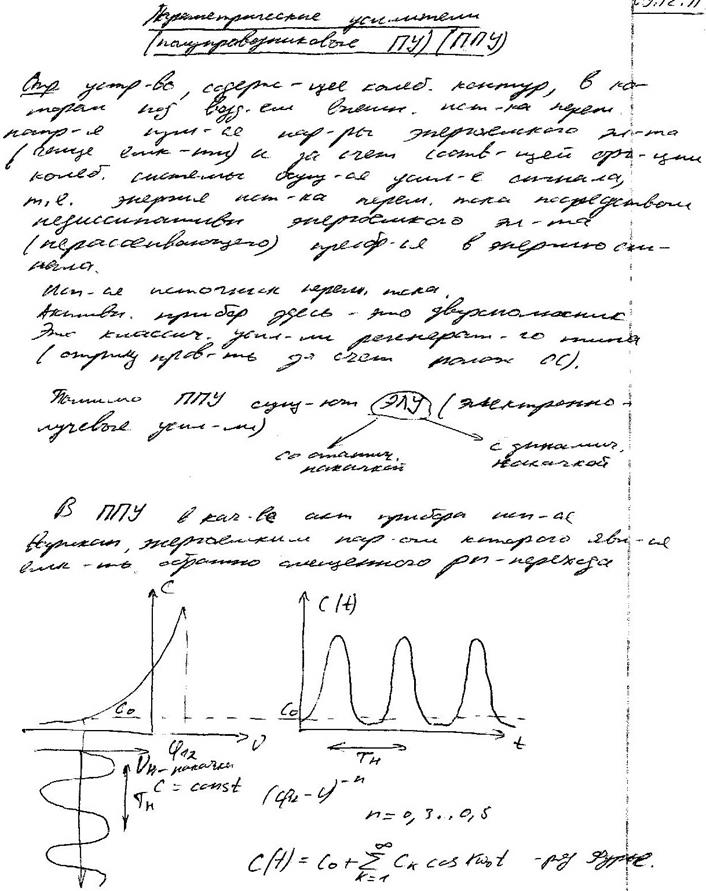 Параметрические усилители
(полупроводниковые ПУ) (ППУ)
устр-во, содерж-щее колеб. контур, в ко-
тором под возд-ем внешн. ист-ка перем.
напр-я пар-ры энергоемкого эл-та
(чаще емк-ти) и за счет соотв-щей
колеб. системы осущ-ся усил-е сигнала,
т.е. энергия ист-ка перем. тока посредством
энергоемкого эл-та
(нерассеивающего) преобр-ся в энергию сиг-
нала.
Исп-ся источник перем. тока.
Активн. прибор здесь - это двухполюсник
Это классич. усил-ли регенерат-го типа
(отриц пров-ть за счет полож ОС).
Помимо ППУ сущ-ют ЭЛУ (электронно-
лучевые усил-ли)
со статич. накачкой
с динамич. накачкой
В ППУ в кач-ве акт прибора исп-ся
Варикап, энергоемким пар-ом которого явл-ся
емк-ть обратно смещенного pn-перехода
C
C(t)
C₀
C₀
φ₁₂
U
T_н
t
U_н-накачки
T_н
C = const (φ₁₂-U)⁻ⁿ
n = 0,3..0,5
C(t) = C₀ + ∑_{k=1}^{∞} C_k cos kω₀t - ряд Фурье.